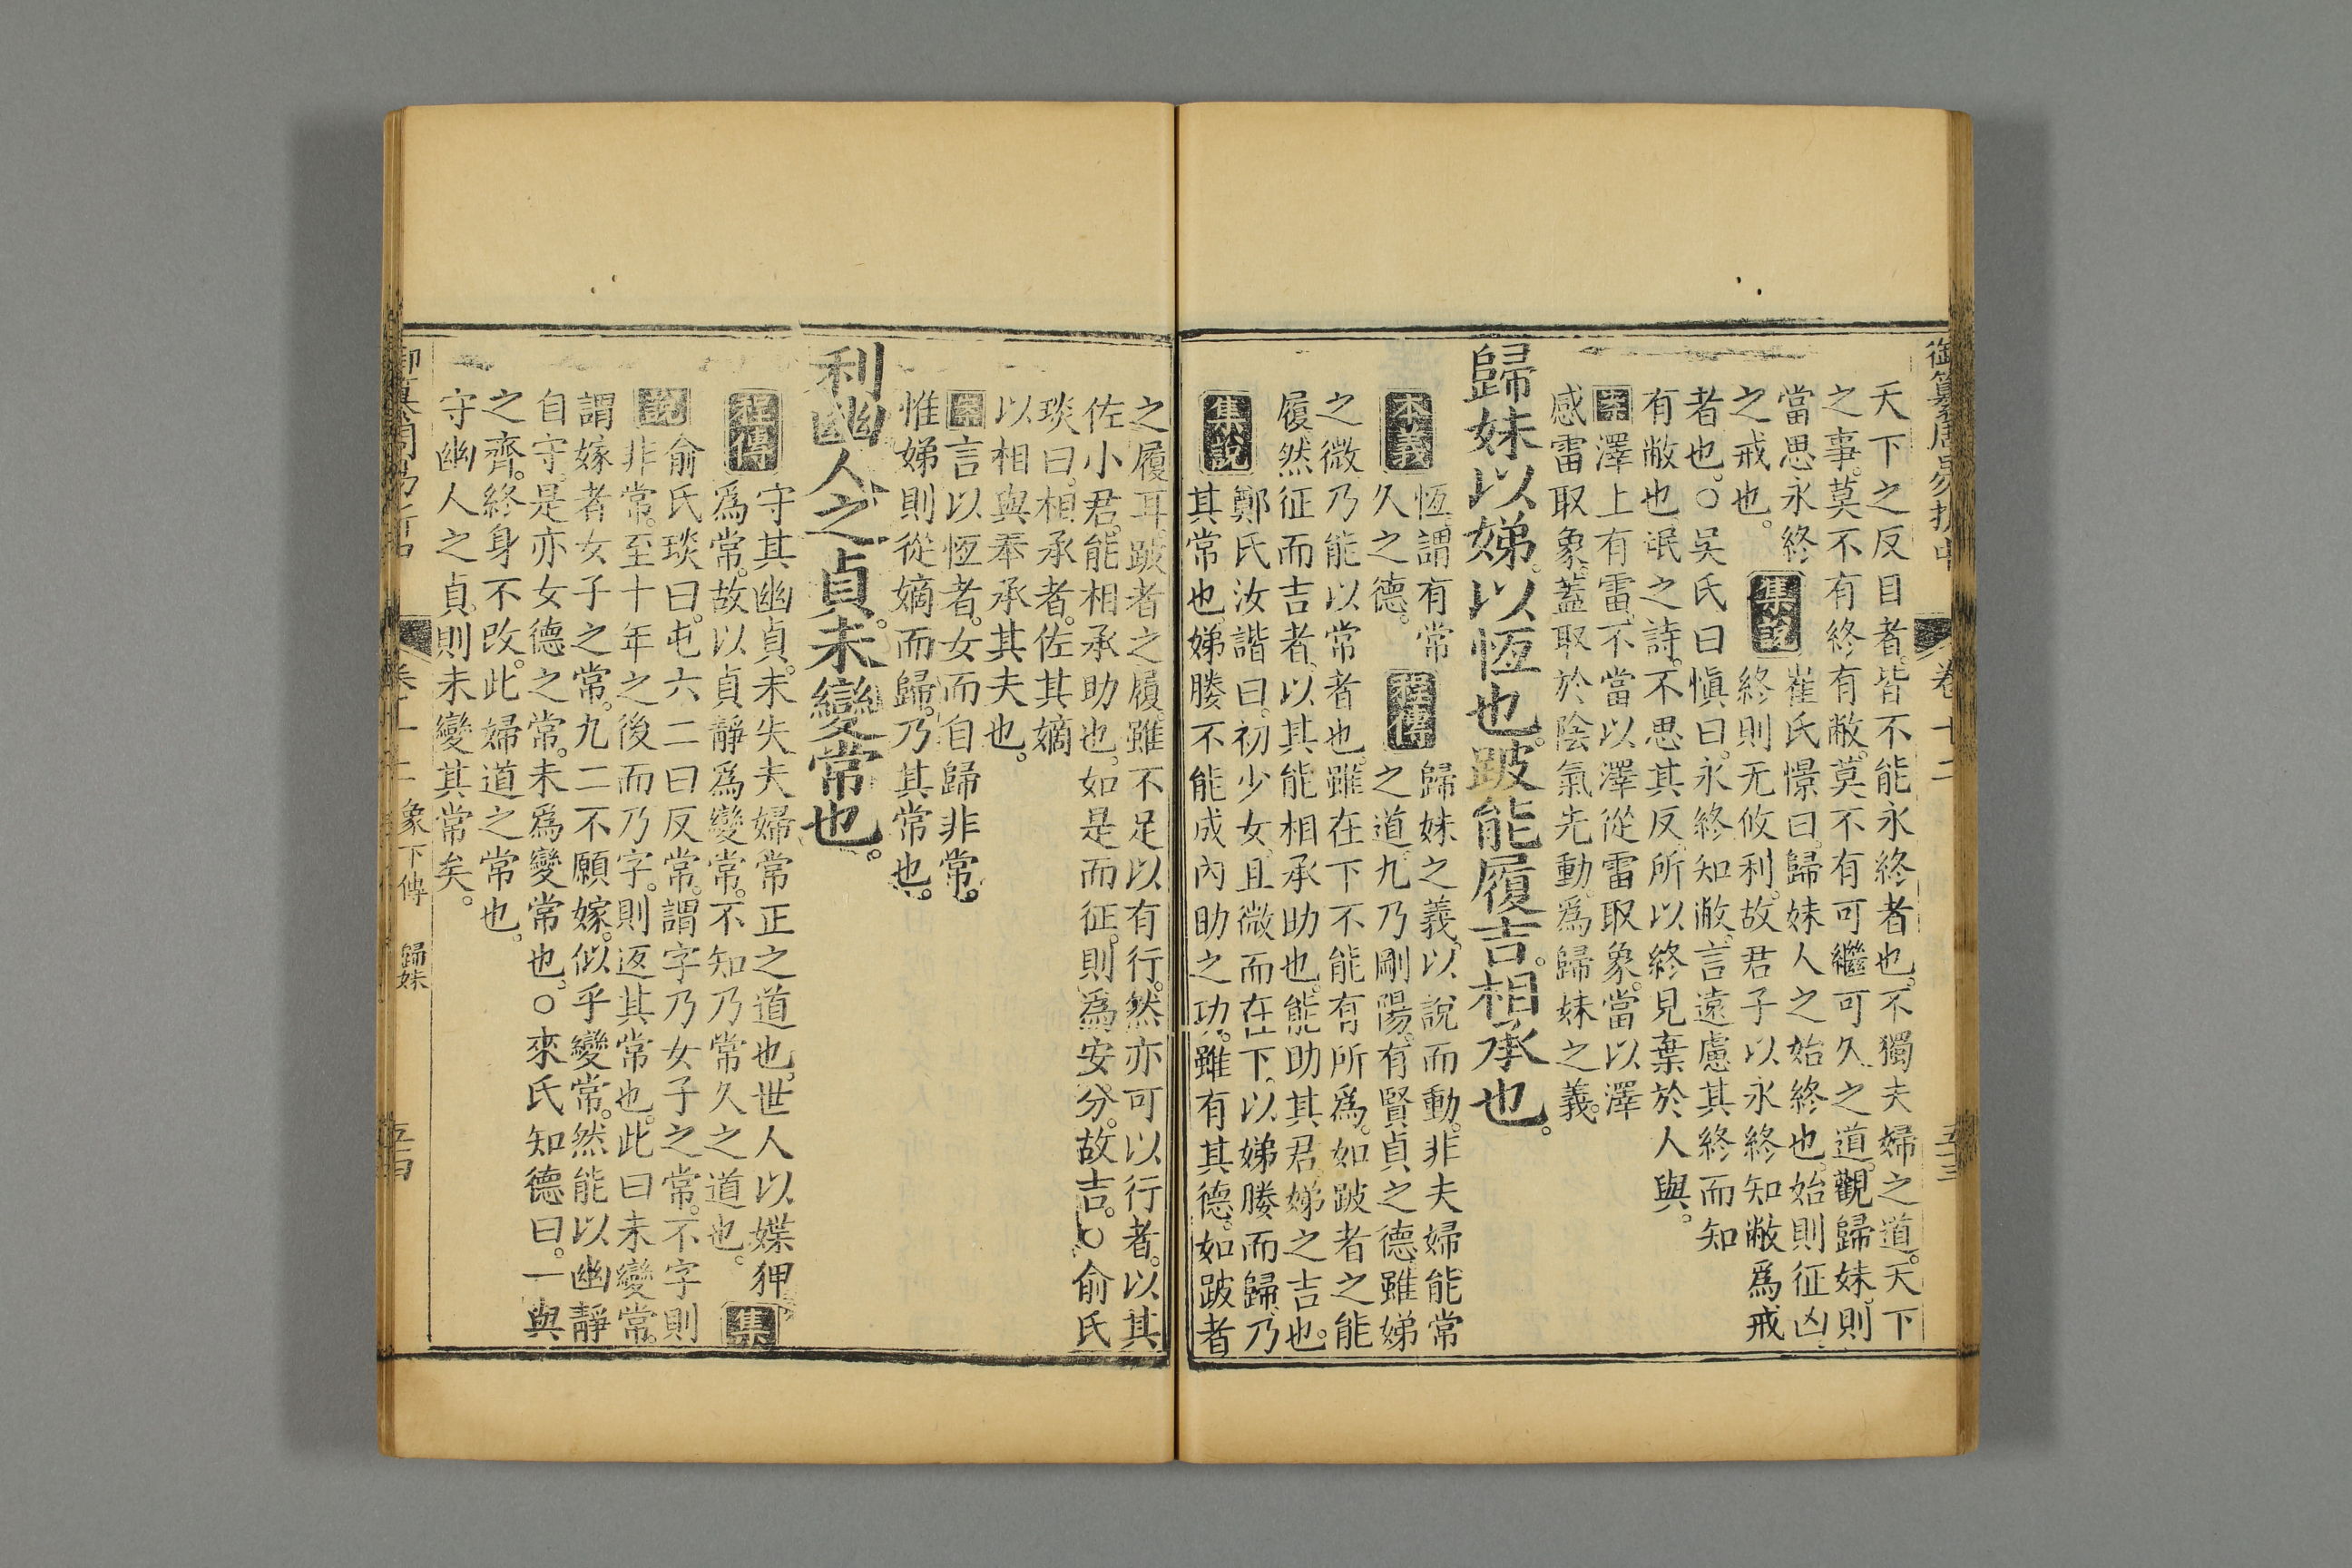 御纂周易折中 卷十二 五十三
天下之反目者。皆不能永終者也。不獨夫婦之道。天下
之事。莫不有終有敝。莫不有可繼可久之道。觀歸妹。則
當思永終
之戒也。
集說
崔氏憬曰。歸妹人之始終也。始則征凶。
終則无攸利。故君子以永終知敝爲戒
者也。○吳氏曰愼曰。永終知敝。言遠慮其終而知
有敝也。氓之詩。不思其反。所以終見棄於人與。
案
澤上有雷。不當以澤從雷取象。當以澤
感雷取象。蓋取於陰氣先動。爲歸妹之義。
歸妹以娣。以恆也。跛能履吉。相承也。
本義
恆。謂有常
久之德。
程傳
歸妹之義。以說而動。非夫婦能常
之道。九乃剛陽。有賢貞之德。雖娣
之微。乃能以常者也。雖在下不能有所爲。如跛者之能
履。然征而吉者。以其能相承助也。能助其君。娣之吉也。
集說
鄭氏汝諧曰。初少女。且微而在下。以娣媵而歸。乃
其常也。娣媵不能成內助之功。雖有其德。如跛者
之履耳。跛者之履。雖不足以有行。然亦可以行者。以其
佐小君。能相承助也。如是而征。則爲安分。故吉。○俞氏
琰曰。相承者。佐其嫡
以相與奉承其夫也。
案
言以恆者。女而自歸非常。
惟娣則從嫡而歸。乃其常也。
利幽人之貞。未變常也。
程傳
守其幽貞。未失夫婦常正之道也。世人以媟狎
爲常。故以貞靜爲變常。不知乃常久之道也。
集
說
俞氏琰曰。屯六二曰反常。謂字乃女子之常。不字則
非常。至十年之後而乃字。則返其常也。此曰未變常。
謂嫁者女子之常。九二不願嫁。似乎變常。然能以幽靜
自守。是亦女德之常。未爲變常也。○來氏知德曰。一與
之齊。終身不改。此婦道之常也。
守幽人之貞。則未變其常矣。
御纂周易折中 卷十二 象下傳 歸妹 五十四